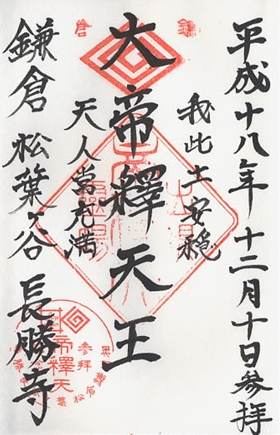 平成十八年十二月十日参拝
我此土安穏
大帝釋天王
天人常充満
鎌倉松葉ヶ谷長勝寺
鎌
倉
帝釋天
参拝